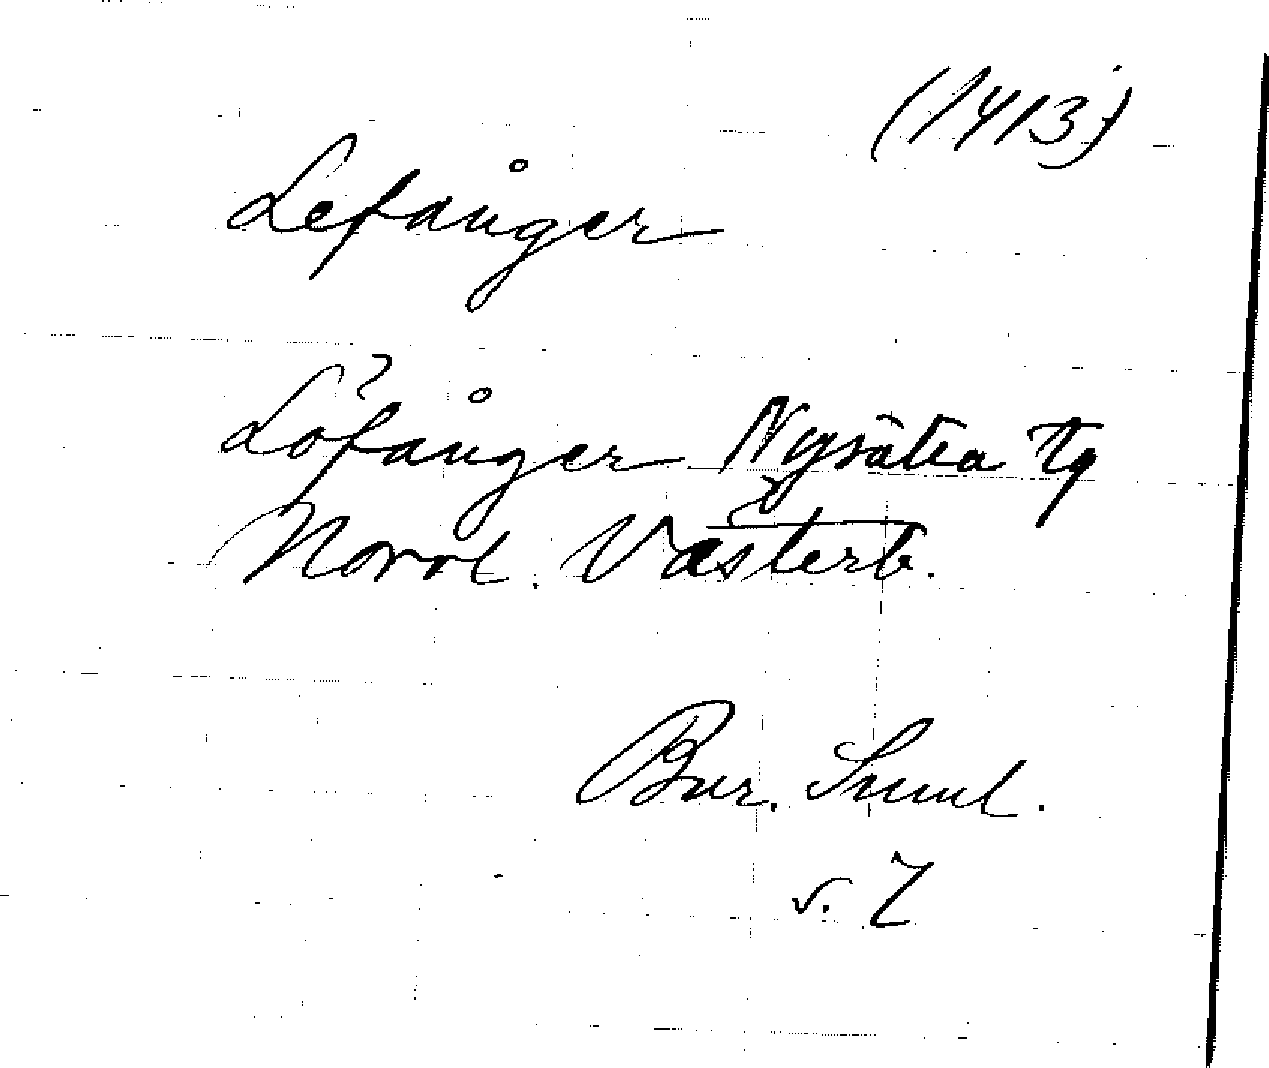 (1413)
Lefånger
Löfånger Nysätra tg
Norrl. Västerb.
Bur. Suml.
s. 7